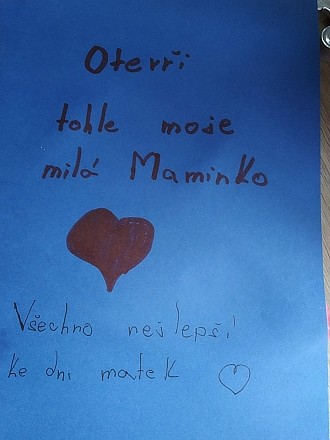 Otevři
tohle moje
milá Maminko
Všechno nejlepší
ke dni matek